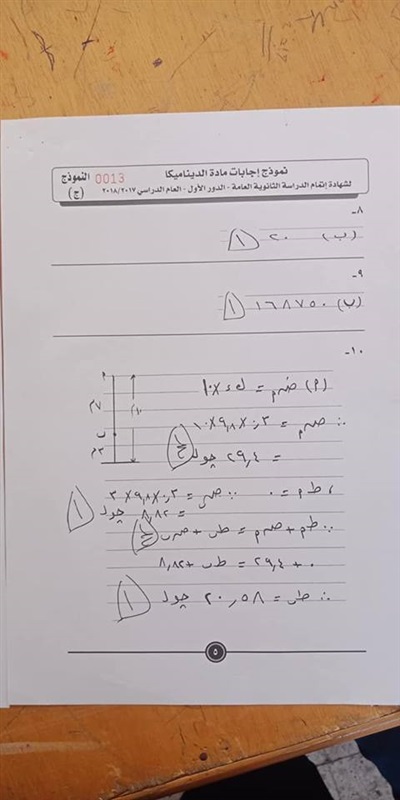 نموذج إجابات مادة الديناميكا
لشهادة إتمام الدراسة الثانوية العامة - الدور الأول - العام الدراسي ٢٠١٨/٢٠١٧
0013 النموذج
(ج)
٨-
(ب) ٢٠ ١
٩-
(ب) ١٦٨٧٥٠ ١
١٠-
(٢) ض‍م = ك × ء × ١٠
∴ ض‍م = ٠,٣ × ٩,٨ × ١٠
= ٢٩,٤ جول
١٠م
٧م
ب
٣م
، طم = ٠ ∴ ضب = ٠,٣ × ٩,٨ × ٣
= ٨,٨٢ جول ١
∴ طم + ضم = طب + ضب
٠ + ٢٩,٤ = طب + ٨,٨٢
∴ طب = ٢٠,٥٨ جول ١
٥